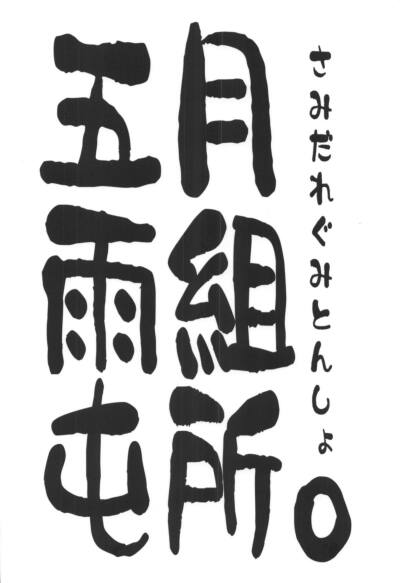 さみだれぐみとんしょ
五月
雨組
屯所。